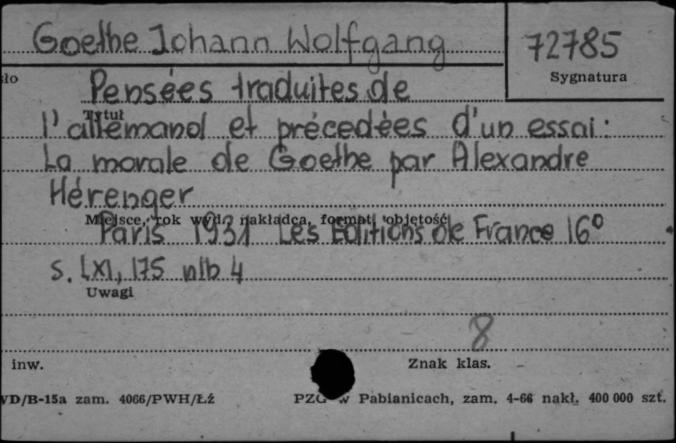 Goethe Johann Wolfgang
72785
Sygnatura
Pensées traduites de
Tytuł
l'allemand et précedées d'un essai:
La morale de Goethe par Alexandre
Hérenger
Miejsce, rok wyd., nakładca, format, objętość
Paris 1931 Les Editions de France 16°
s. LXI, 175 nlb 4
Uwagi
8
inw.
Znak klas.
VD/B-15a zam. 4066/PWH/Łź
PZG w Pabianicach, zam. 4-66 nakł. 400 000 szt.